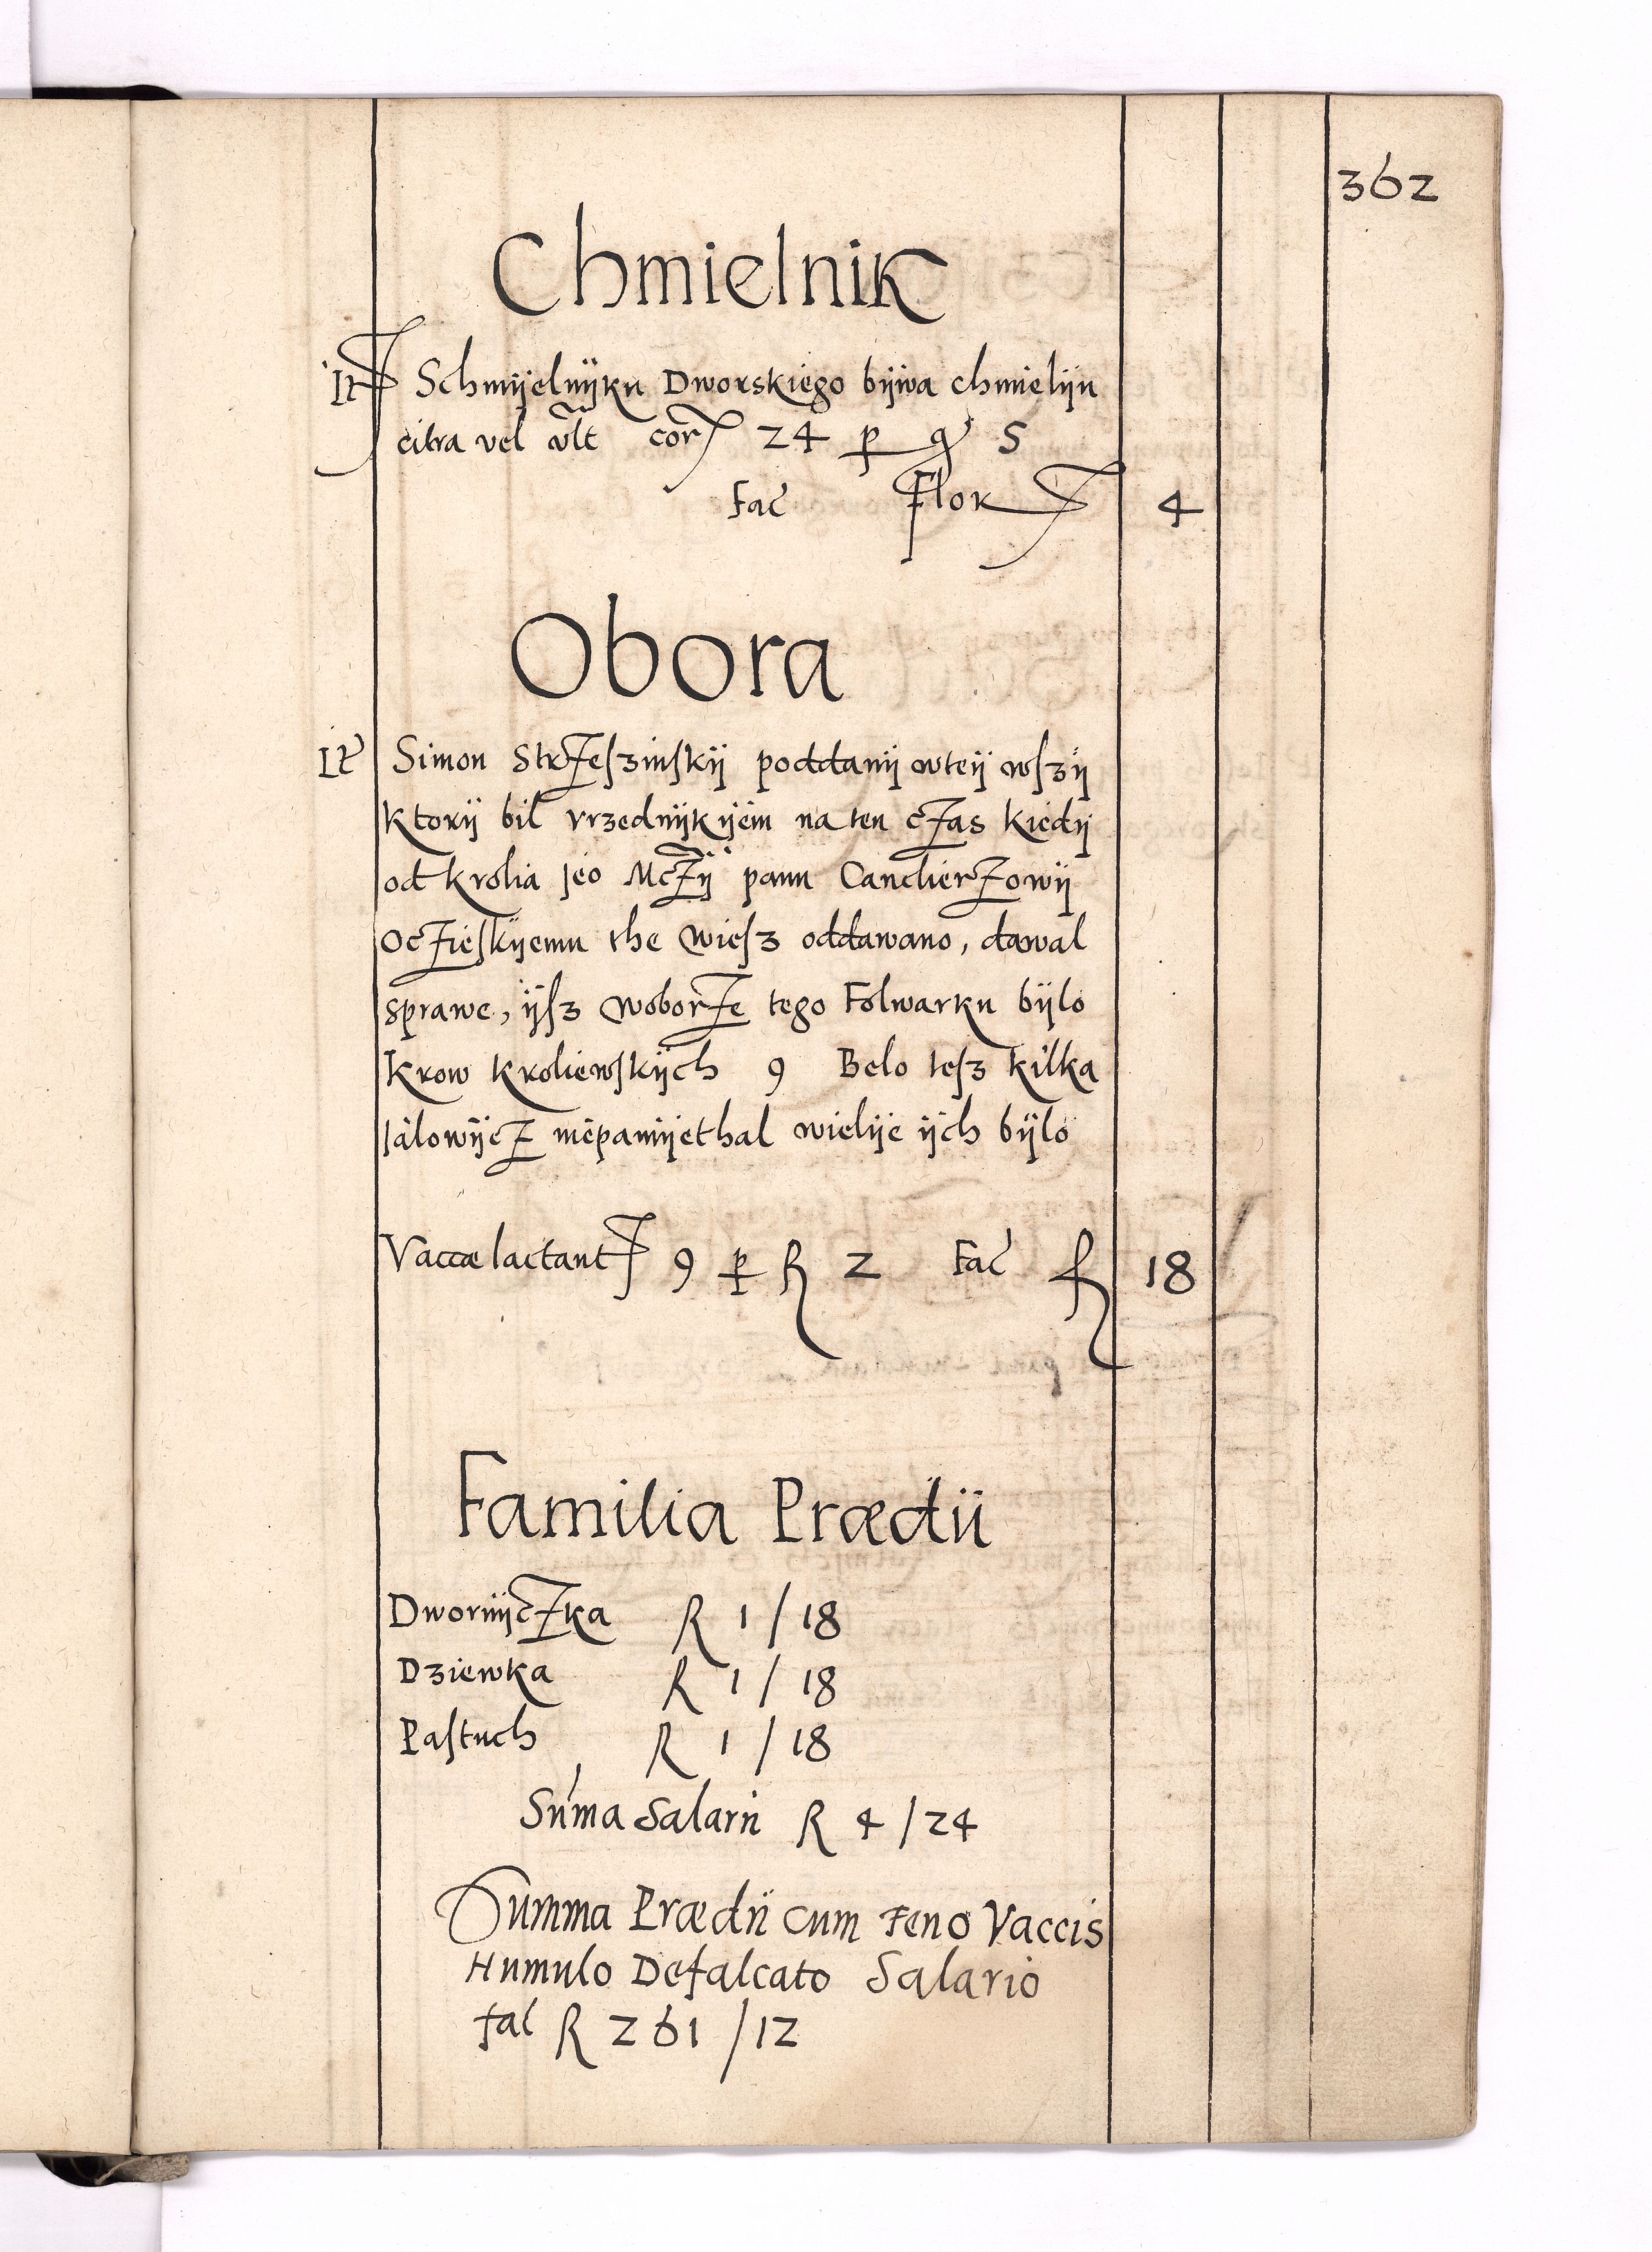 362
Chmielnik
It Schmÿelnÿku Dworskiego bÿwa chmielÿu
citra vel vlt cor 24 p gr 5
Fac Flor 4
Obora
It Simon Strzeszinskÿ poddanÿ wteÿ wszÿ
Ktorÿ bil vrzednÿkÿem na ten czas kiedÿ
od krolia Jeo Mczÿ panu Canclierzowÿ
Oczieskÿemu the wiesz oddawano, dawal
sprawe, ÿsz woborze tego Folwarku bÿlo
Krow Kroliewskÿch 9 Belo tesz kilka
Jalowÿcz niepamÿethal wielÿe ÿch bÿlo
Vaccæ lactant 9 p R 2 Fac R 18
Familia Prædii
Dwornÿczka R 1 / 18
Dziewka R 1 / 18
Pastuch R 1 / 18
Suma Salarii R 4 / 24
Summa Prædii cum Feno Vaccis
Humulo Defalcato Salario
fac R 261 / 12